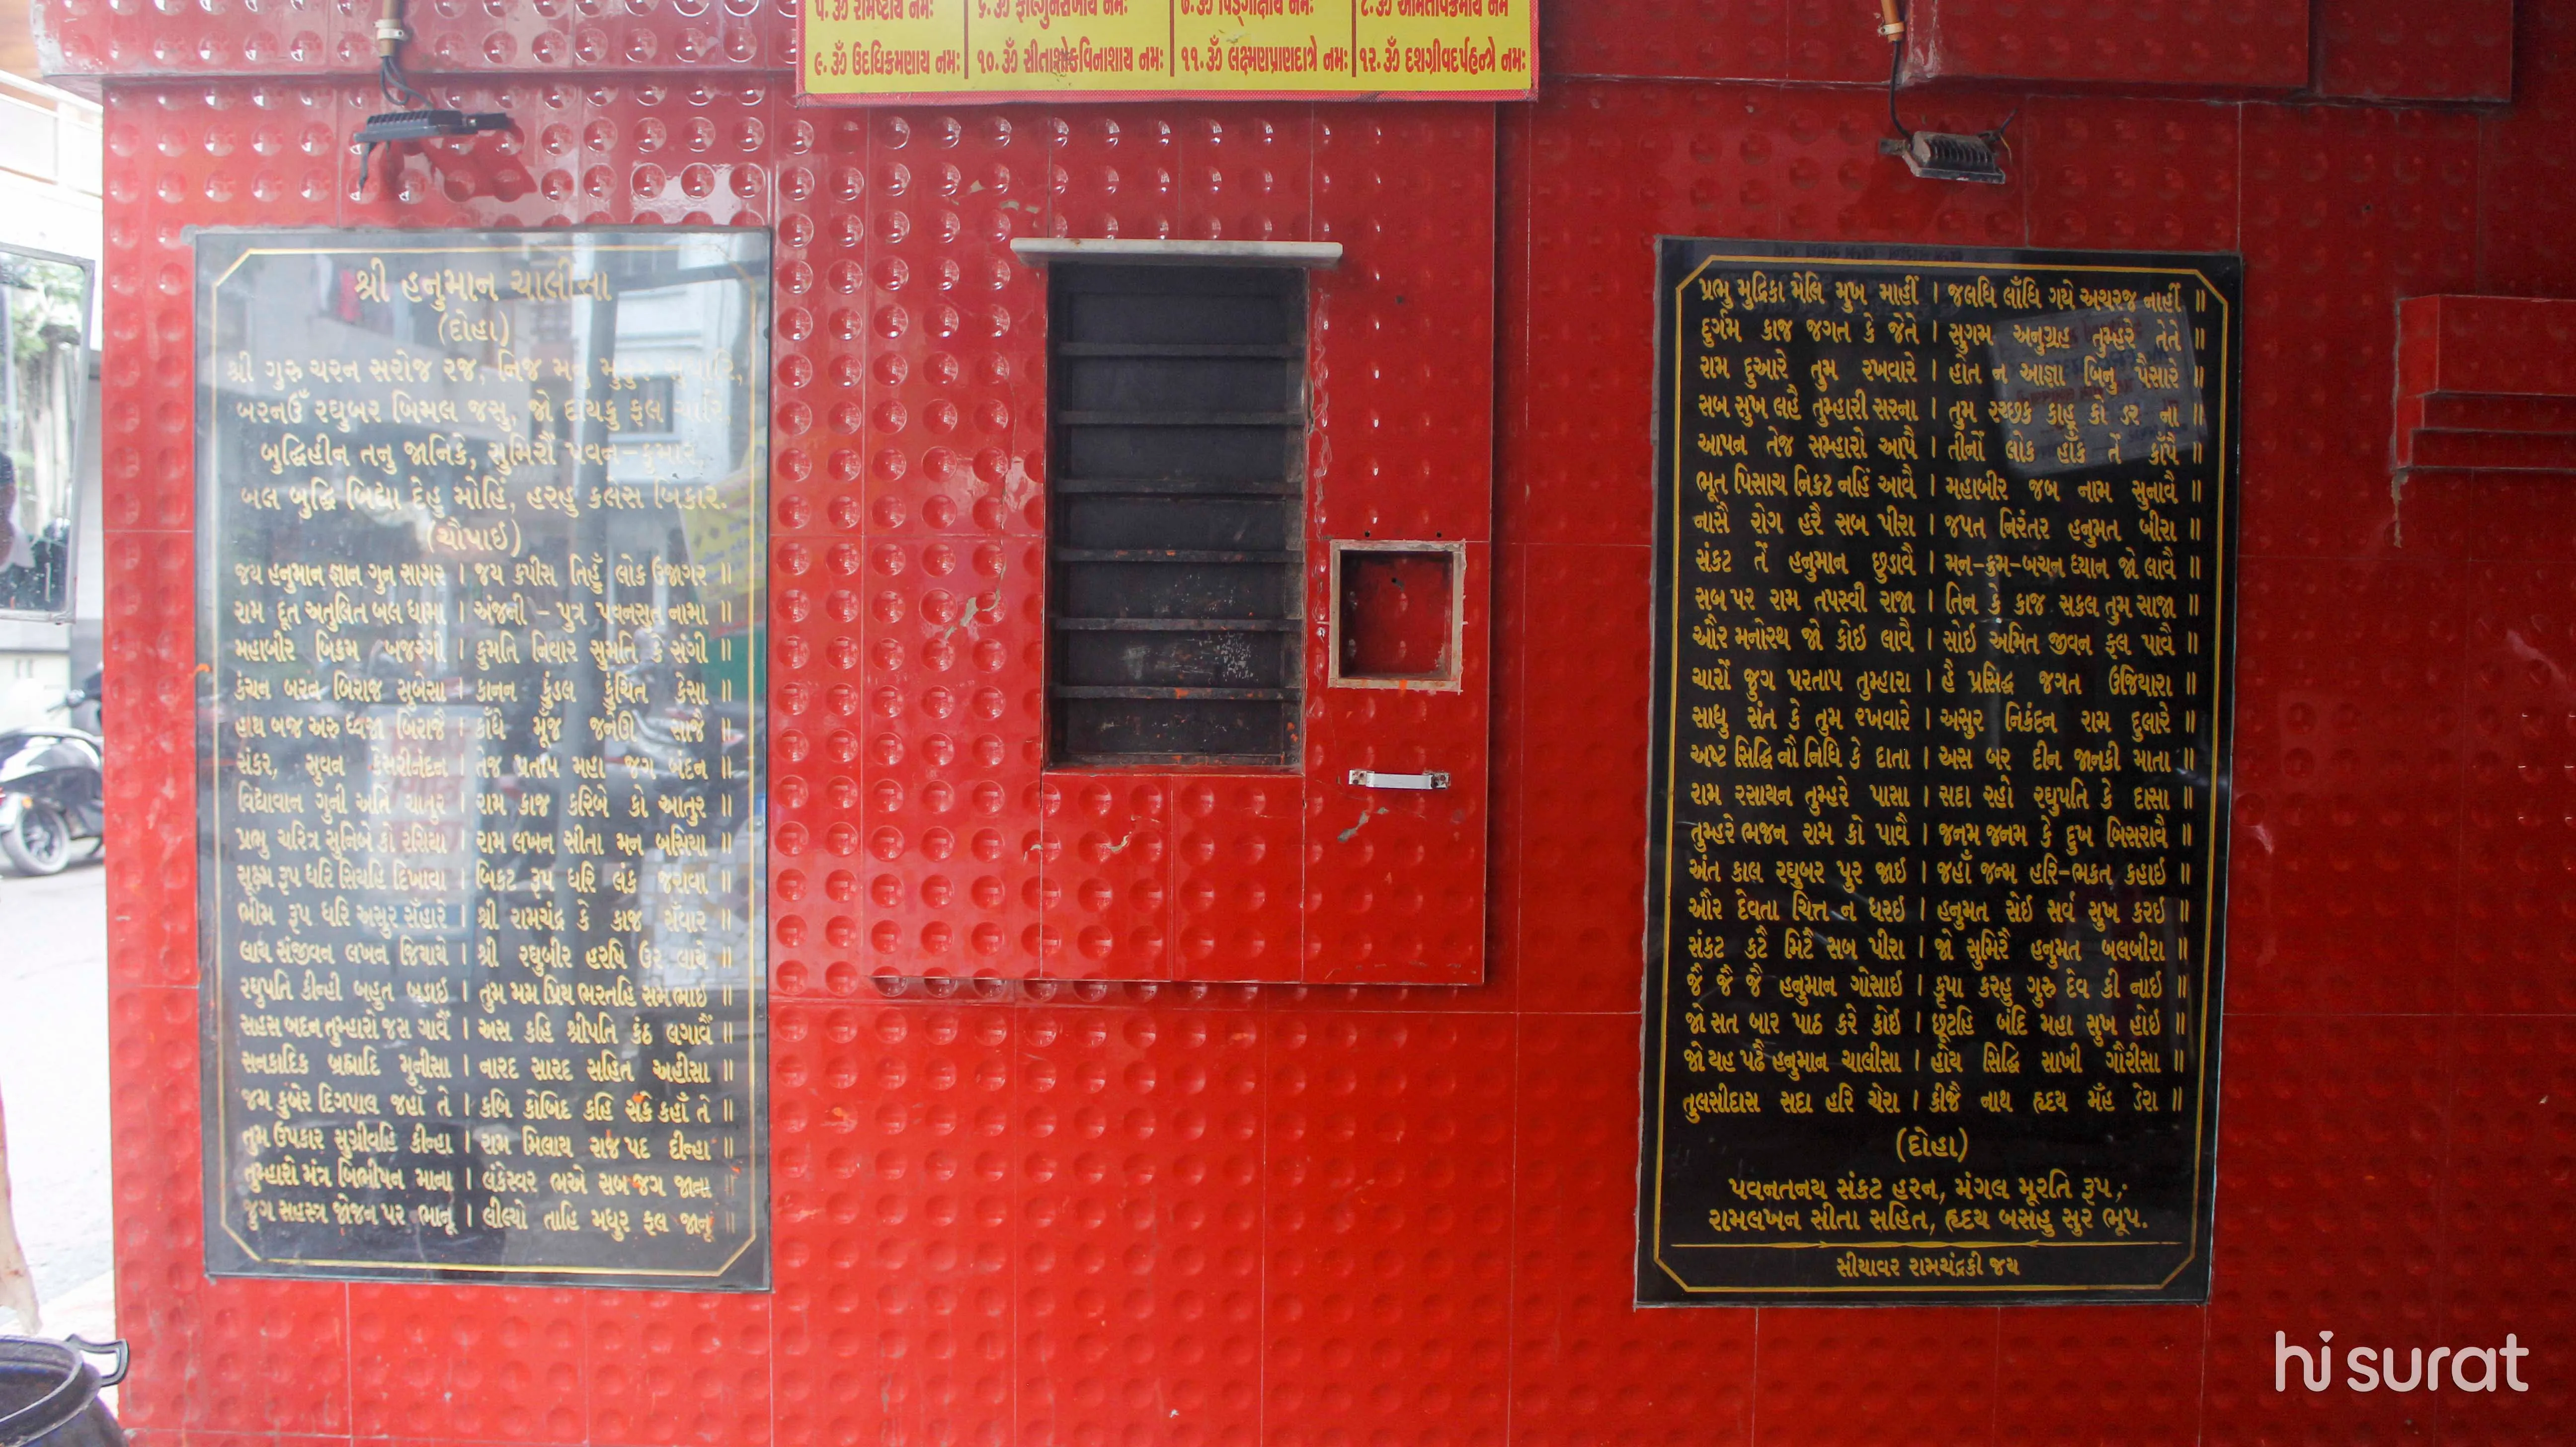 ૫.ૐ રામેષ્ટાય નમઃ ૬.ૐ ફાલ્ગુનસખાય નમઃ ૭.ૐ પિંડ્ગાક્ષાય નમઃ ૮.ૐ અમિતવિક્રમાય નમ
૯.ૐ ઉદધિક્રમણાય નમઃ ૧૦.ૐ સીતાશોકવિનાશાય નમઃ ૧૧.ૐ લક્ષ્મણપ્રાણદાત્રે નમઃ ૧૨.ૐ દશગ્રીવદર્પહન્ત્રે નમઃ
શ્રી હનુમાન ચાલીસા
(દોહા)
શ્રી ગુરુ ચરન સરોજ રજ, નિજ
બરનઉઁ રઘુબર બિમલ જસુ, જો દાયકુ ફલ ચારિ,
બુદ્ધિહીન તનુ જાનિકે, સુમિરૌં પવન-કુમાર
બલ બુદ્ધિ બિદ્યા દેહુ મોહિં, હરહુ કલેસ બિકાર.
(ચૌપાઈ)
જય હનુમાન જ્ઞાન ગુન સાગર । જય કપીસ તિહુઁ લોક ઉજાગર ॥
રામ દૂત અતુલિત બલ ધામા । અંજની - પુત્ર પવનસુત નામા ॥
મહાબીર બિક્રમ બજરંગી । કુમતિ નિવાર સુમતિ કે સંગી ॥
કંચન બરન બિરાજ સુબેસા । કાનન કુંડલ કુંચિત કેસા ॥
હાથ બજ અરુ ધ્વજા બિરાજૈ । કાઁધે મૂંજ જનેઊ સાજૈ ॥
સંકર, સુવન કેસરીનંદન । તેજ પ્રતાપ મહા જગ બંદન ॥
વિદ્યાવાન ગુની અતિ ચાતુર । રામ કાજ કરિબે કો આતુર ॥
પ્રભુ ચરિત્ર સુનિબે કો રસિયા । રામ લખન સીતા મન બસિયા ॥
સૂક્ષ્મ રૂપ ધરિ સિયહિ દિખાવા । બિકટ રૂપ ધરિ લંક જરાવા ॥
ભીમ રૂપ ધરિ અસુર સઁહારે । શ્રી રામચંદ્ર કે કાજ સઁવારે ॥
લાય સંજીવન લખન જિયાયે । શ્રી રઘુબીર હરષિ ઉર લાયે ॥
રઘુપતિ કીન્હી બહુત બડાઇ । તુમ મમ પ્રિય ભરતહિ સમ ભાઇ ॥
સહસ બદન તુમ્હારો જસ ગાવૈં । અસ કહિ શ્રીપતિ કંઠ લગાવૈં ॥
સનકાદિક બ્રહ્માદિ મુનીસા । નારદ સારદ સહિત અહીસા ॥
જમ કુબેર દિગપાલ જહાઁ તે । કબિ કોબિદ કહિ સકે કહાઁ તે ॥
તુમ ઉપકાર સુગ્રીવહિ કીન્હા । રામ મિલાય રાજ પદ દીન્હા ॥
તુમ્હારો મંત્ર બિભીષન માના । લંકેસ્વર ભએ સબ જગ જાના ॥
જુગ સહસ્ત્ર જોજન પર ભાનૂ । લીલ્યો તાહિ મધુર ફલ જાનૂ ॥
પ્રભુ મુદ્રિકા મેલિ મુખ માહીં । જલધિ લાઁધિ ગયે અચરજ નાહીં ॥
દુર્ગમ કાજ જગત કે જેતે । સુગમ અનુગ્રહ તુમ્હરે તેતે ॥
રામ દુઆરે તુમ રખવારે । હોત ન આજ્ઞા બિનુ પૈસારે ॥
સબ સુખ લહૈ તુમ્હારી સરના । તુમ રચ્છક કાહૂ કો ડર ના ॥
આપન તેજ સમ્હારો આપૈ । તીનોં લોક હાઁક તેં કાઁપૈ ॥
ભૂત પિસાચ નિકટ નહિં આવૈ । મહાબીર જબ નામ સુનાવૈ ॥
નાસૈ રોગ હરૈ સબ પીરા । જપત નિરંતર હનુમત બીરા ॥
સંકટ તેં હનુમાન છુડાવૈ । મન-ક્રમ-બચન ધ્યાન જો લાવૈ ॥
સબ પર રામ તપસ્વી રાજા । તિન કે કાજ સકલ તુમ સાજા ॥
ઔર મનોરથ જો કોઇ લાવૈ । સોઇ અમિત જીવન ફલ પાવૈ ॥
ચારોં જુગ પરતાપ તુમ્હારા । હૈ પ્રસિદ્ધ જગત ઉજિયારા ॥
સાધુ સંત કે તુમ રખવારે । અસુર નિકંદન રામ દુલારે ॥
અષ્ટ સિદ્ધિ નૌ નિધિ કે દાતા । અસ બર દીન જાનકી માતા ॥
રામ રસાયન તુમ્હરે પાસા । સદા રહો રઘુપતિ કે દાસા ॥
તુમ્હરે ભજન રામ કો પાવૈ । જનમ જનમ કે દુખ બિસરાવૈ ॥
અંત કાલ રઘુબર પુર જાઇ । જહાઁ જન્મ હરિ-ભક્ત કહાઇ ॥
ઔર દેવતા ચિત્ત ન ધરઇ । હનુમત સેઇ સર્વ સુખ કરઇ ॥
સંકટ કટૈ મિટૈ સબ પીરા । જો સુમિરૈ હનુમત બલબીરા ॥
જૈ જૈ જૈ હનુમાન ગોસાઇ । કૃપા કરહુ ગુરુ દેવ કી નાઇ ॥
જો સત બાર પાઠ કરે કોઇ । છૂટહિ બંદિ મહા સુખ હોઇ ॥
જો યહ પઢૈ હનુમાન ચાલીસા । હોય સિદ્ધિ સાખી ગૌરીસા ॥
તુલસીદાસ સદા હરિ ચેરા । કીજૈ નાથ હૃદય મઁહ ડેરા ॥
(દોહા)
પવનતનય સંકટ હરન, મંગલ મૂરતિ રૂપ,
રામલખન સીતા સહિત, હૃદય બસહુ સુર ભૂપ.
સીયાવર રામચંદ્રકી જય
hi surat